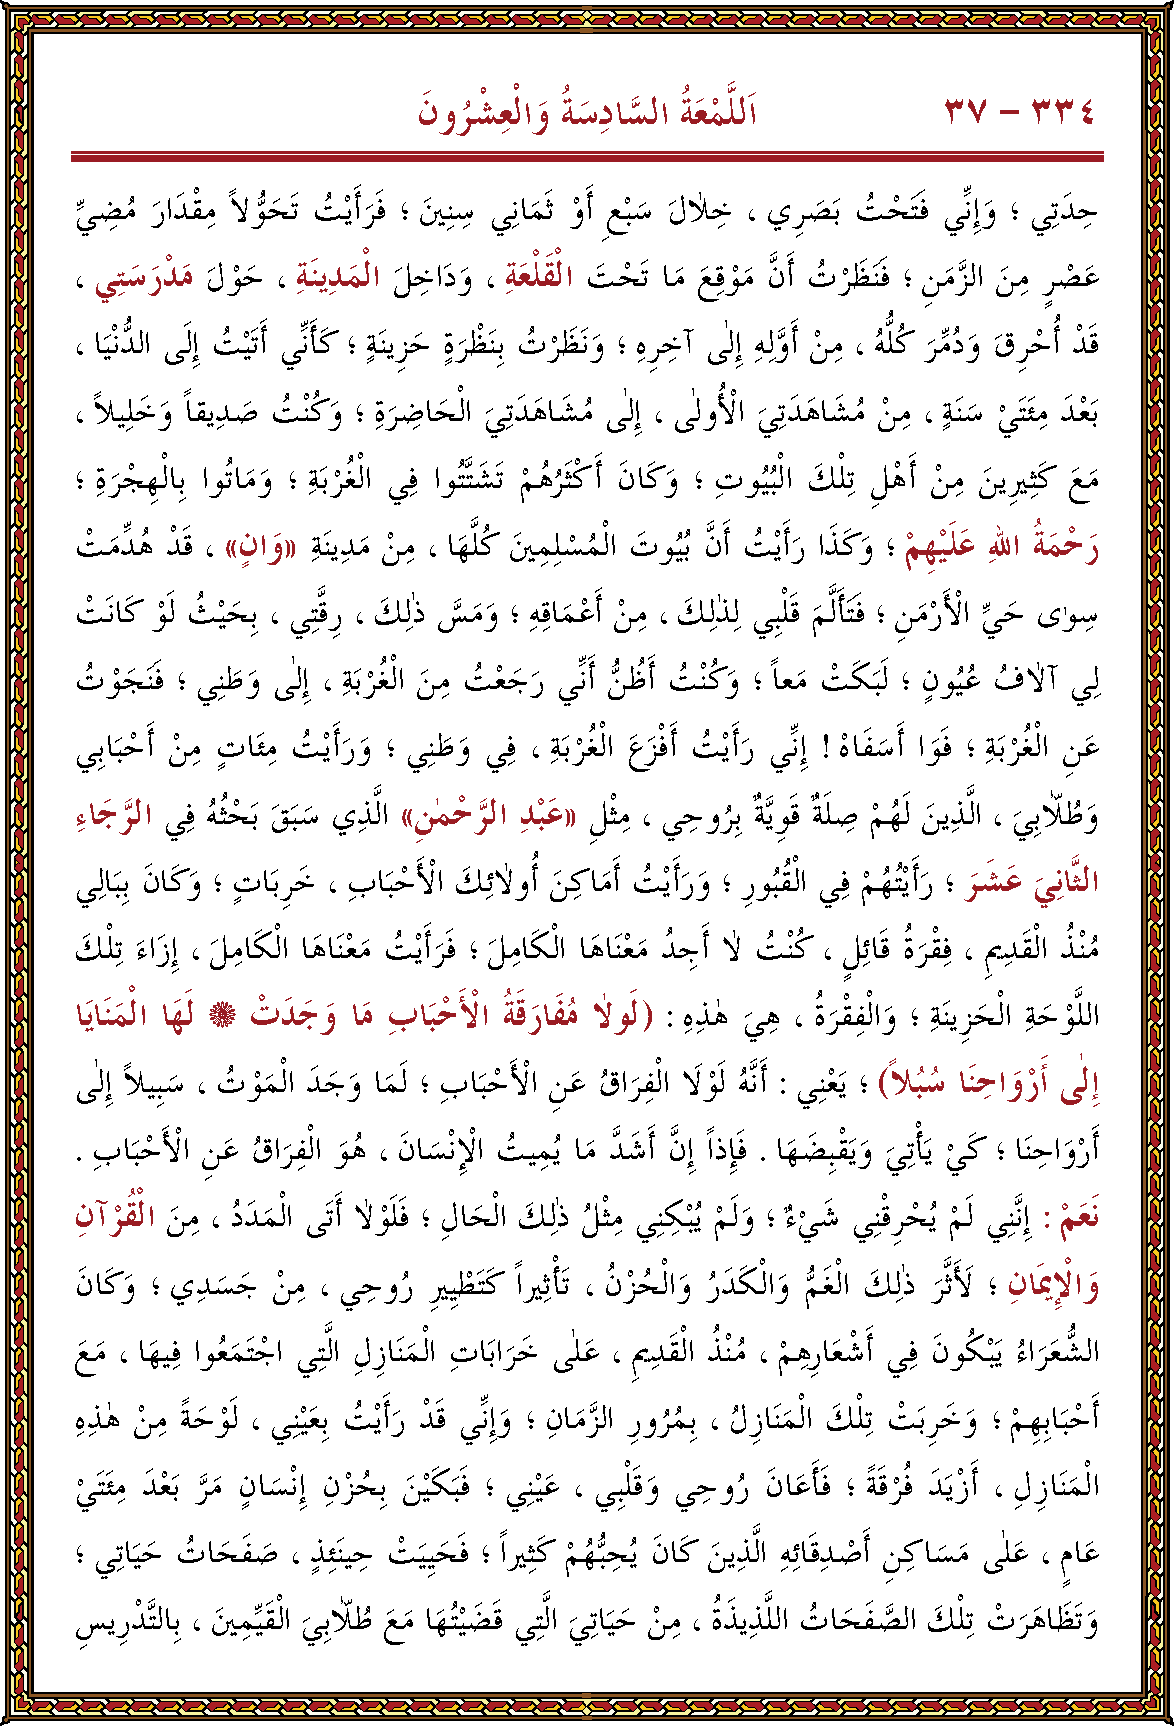 ٣٣٤ – ٣٧ اَللَّمْعَةُ السَّادِسَةُ وَالْعِشْرُونَ
حِدَتِي ؛ وَإِنِّي فَتَحْتُ بَصَرِي ، خِلَالَ سَبْعِ أَوْ ثَمَانِي سِنِينَ ؛ فَرَأَيْتُ تَحَوُّلاً مِقْدَارَ مُضِيِّ
عَصْرٍ مِنَ الزَّمَنِ ؛ فَنَظَرْتُ أَنَّ مَوْقِعَ مَا تَحْتَ الْقَلْعَةِ ، وَدَاخِلَ الْمَدِينَةِ ، حَوْلَ مَدْرَسَتِي ،
قَدْ أُحْرِقَ وَدُمِّرَ كُلُّهُ ، مِنْ أَوَّلِهِ إِلٰى آخِرِهِ ؛ وَنَظَرْتُ بِنَظْرَةٍ حَزِينَةٍ ؛ كَأَنِّي أَتَيْتُ إِلَى الدُّنْيَا ،
بَعْدَ مِئَتَيْ سَنَةٍ ، مِنْ مُشَاهَدَتِيَ الْأُولٰى ، إِلٰى مُشَاهَدَتِيَ الْحَاضِرَةِ ؛ وَكُنْتُ صَدِيقاً وَخَلِيلاً ،
مَعَ كَثِيرِينَ مِنْ أَهْلِ تِلْكَ الْبُيُوتِ ؛ وَكَانَ أَكْثَرُهُمْ تَشَتَّتُوا فِي الْغُرْبَةِ ؛ وَمَاتُوا بِالْهِجْرَةِ ؛
رَحْمَةُ اللهِ عَلَيْهِمْ ؛ وَكَذَا رَأَيْتُ أَنَّ بُيُوتَ الْمُسْلِمِينَ كُلَّهَا ، مِنْ مَدِينَةِ «وَانٍ» ، قَدْ هُدِّمَتْ
سِوٰى حَيِّ الْأَرْمَنِ ؛ فَتَأَلَّمَ قَلْبِي لِذٰلِكَ ، مِنْ أَعْمَاقِهِ ؛ وَمَسَّ ذٰلِكَ ، رِقَّتِي ، بِحَيْثُ لَوْ كَانَتْ
لِي آلَافُ عُيُونٍ ؛ لَبَكَتْ مَعاً ؛ وَكُنْتُ أَظُنُّ أَنِّي رَجَعْتُ مِنَ الْغُرْبَةِ ، إِلٰى وَطَنِي ؛ فَنَجَوْتُ
عَنِ الْغُرْبَةِ ؛ فَوَا أَسَفَاهْ ! إِنِّي رَأَيْتُ أَفْزَعَ الْغُرْبَةِ ، فِي وَطَنِي ؛ وَرَأَيْتُ مِئَاتٍ مِنْ أَحْبَابِي
وَطُلَّابِيَ ، الَّذِينَ لَهُمْ صِلَةٌ قَوِيَّةٌ بِرُوحِي ، مِثْلِ «عَبْدِ الرَّحْمٰنِ» الَّذِي سَبَقَ بَحْثُهُ فِي الرَّجَاءِ
الثَّانِيَ عَشَرَ ؛ رَأَيْتُهُمْ فِي الْقُبُورِ ؛ وَرَأَيْتُ أَمَاكِنَ أُولٰئِكَ الْأَحْبَابِ ، خَرِبَاتٍ ؛ وَكَانَ بِبَالِي
مُنْذُ الْقَدِيمِ ، فِقْرَةُ قَائِلٍ ، كُنْتُ لَا أَجِدُ مَعْنَاهَا الْكَامِلَ ؛ فَرَأَيْتُ مَعْنَاهَا الْكَامِلَ ، إِزَاءَ تِلْكَ
اللَّوْحَةِ الْحَزِينَةِ ؛ وَالْفِقْرَةُ ، هِيَ هٰذِهِ : (لَولَا مُفَارَقَةُ الْأَحْبَابِ مَا وَجَدَتْ ۞ لَهَا الْمَنَايَا
إِلٰى أَرْوَاحِنَا سُبُلاً) ؛ يَعْنِي : أَنَّهُ لَوْلَا الْفِرَاقُ عَنِ الْأَحْبَابِ ؛ لَمَا وَجَدَ الْمَوْتُ ، سَبِيلاً إِلٰى
أَرْوَاحِنَا ؛ كَيْ يَأْتِيَ وَيَقْبِضَهَا . فَإِذاً إِنَّ أَشَدَّ مَا يُمِيتُ الْإِنْسَانَ ، هُوَ الْفِرَاقُ عَنِ الْأَحْبَابِ .
نَعَمْ : إِنَّنِي لَمْ يُحْرِقْنِي شَيْءٌ ؛ وَلَمْ يُبْكِنِي مِثْلُ ذٰلِكَ الْحَالِ ؛ فَلَوْلَا أَتَى الْمَدَدُ ، مِنَ الْقُرْآنِ
وَالْإِيمَانِ ؛ لَأَثَّرَ ذٰلِكَ الْغَمُّ وَالْكَدَرُ وَالْحُزْنُ ، تَأْثِيراً كَتَطْيِيرِ رُوحِي ، مِنْ جَسَدِي ؛ وَكَانَ
الشُّعَرَاءُ يَبْكُونَ فِي أَشْعَارِهِمْ ، مُنْذُ الْقَدِيمِ ، عَلٰى خَرَابَاتِ الْمَنَازِلِ الَّتِي اجْتَمَعُوا فِيهَا ، مَعَ
أَحْبَابِهِمْ ؛ وَخَرِبَتْ تِلْكَ الْمَنَازِلُ ، بِمُرُورِ الزَّمَانِ ؛ وَإِنِّي قَدْ رَأَيْتُ بِعَيْنِي ، لَوْحَةً مِنْ هٰذِهِ
الْمَنَازِلِ ، أَزْيَدَ فُرْقَةً ؛ فَأَعَانَ رُوحِي وَقَلْبِي ، عَيْنِي ؛ فَبَكَيْنَ بِحُزْنِ إِنْسَانٍ مَرَّ بَعْدَ مِئَتَيْ
عَامٍ ، عَلٰى مَسَاكِنِ أَصْدِقَائِهِ الَّذِينَ كَانَ يُحِبُّهُمْ كَثِيراً ؛ فَحَيِيَتْ حِينَئِذٍ ، صَفَحَاتُ حَيَاتِي ؛
وَتَظَاهَرَتْ تِلْكَ الصَّفَحَاتُ اللَّذِيذَةُ ، مِنْ حَيَاتِيَ الَّتِي قَضَيْتُهَا مَعَ طُلَّابِيَ الْقَيِّمِينَ ، بِالتَّدْرِيسِ